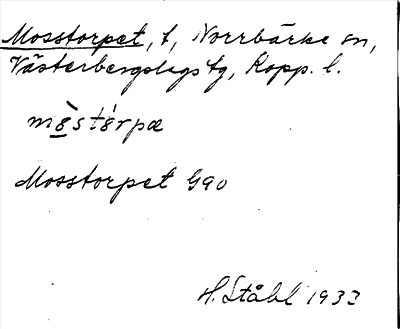 Mosstorpet, t, Norrbärke sn,
Västerbergslags tg, Kopp. l.
mò̱stó̱rpæ
Mosstorpet G90
H. Ståhl 1933